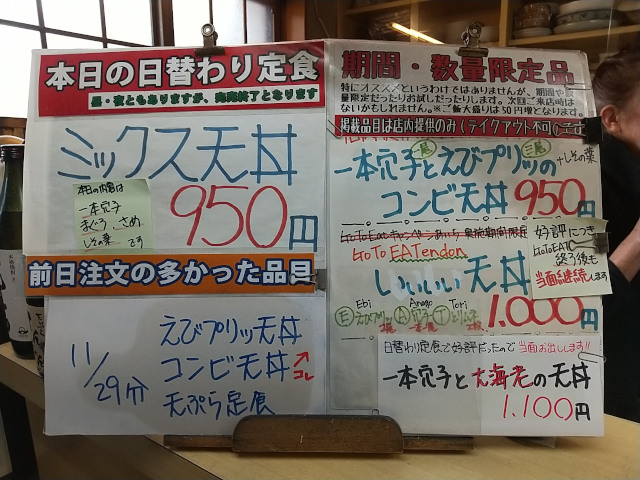 本日の日替わり定食
昼・夜ともありますが、完売終了となります
ミックス天丼
950円
本日の内容は
一本穴子
まぐろ、さめ
しその葉 です
前日注文の多かった品目
11/29分
えびプリッ天丼
コンビ天丼
コレ
天ぷら定食
期間・数量限定品
特にオススメというわけではありませんが、期間や数
量限定だったりお試しだったりします。次回ご来店時は
ないかもしれません。※ご飯大盛りは50円増となります。
掲載品目は店内提供のみ(テイクアウト不可)
一本穴子とえびプリッの
+しその葉
コンビ天丼 950円
GoTo EATendon
好評につき
GoToEAT
終了後も
当面継続します
いいいい天丼
Ebi Anago Tori
1.000円
日替わり定食で好評だったので当面お出しします!!
一本穴子と大海老の天丼
1.100円